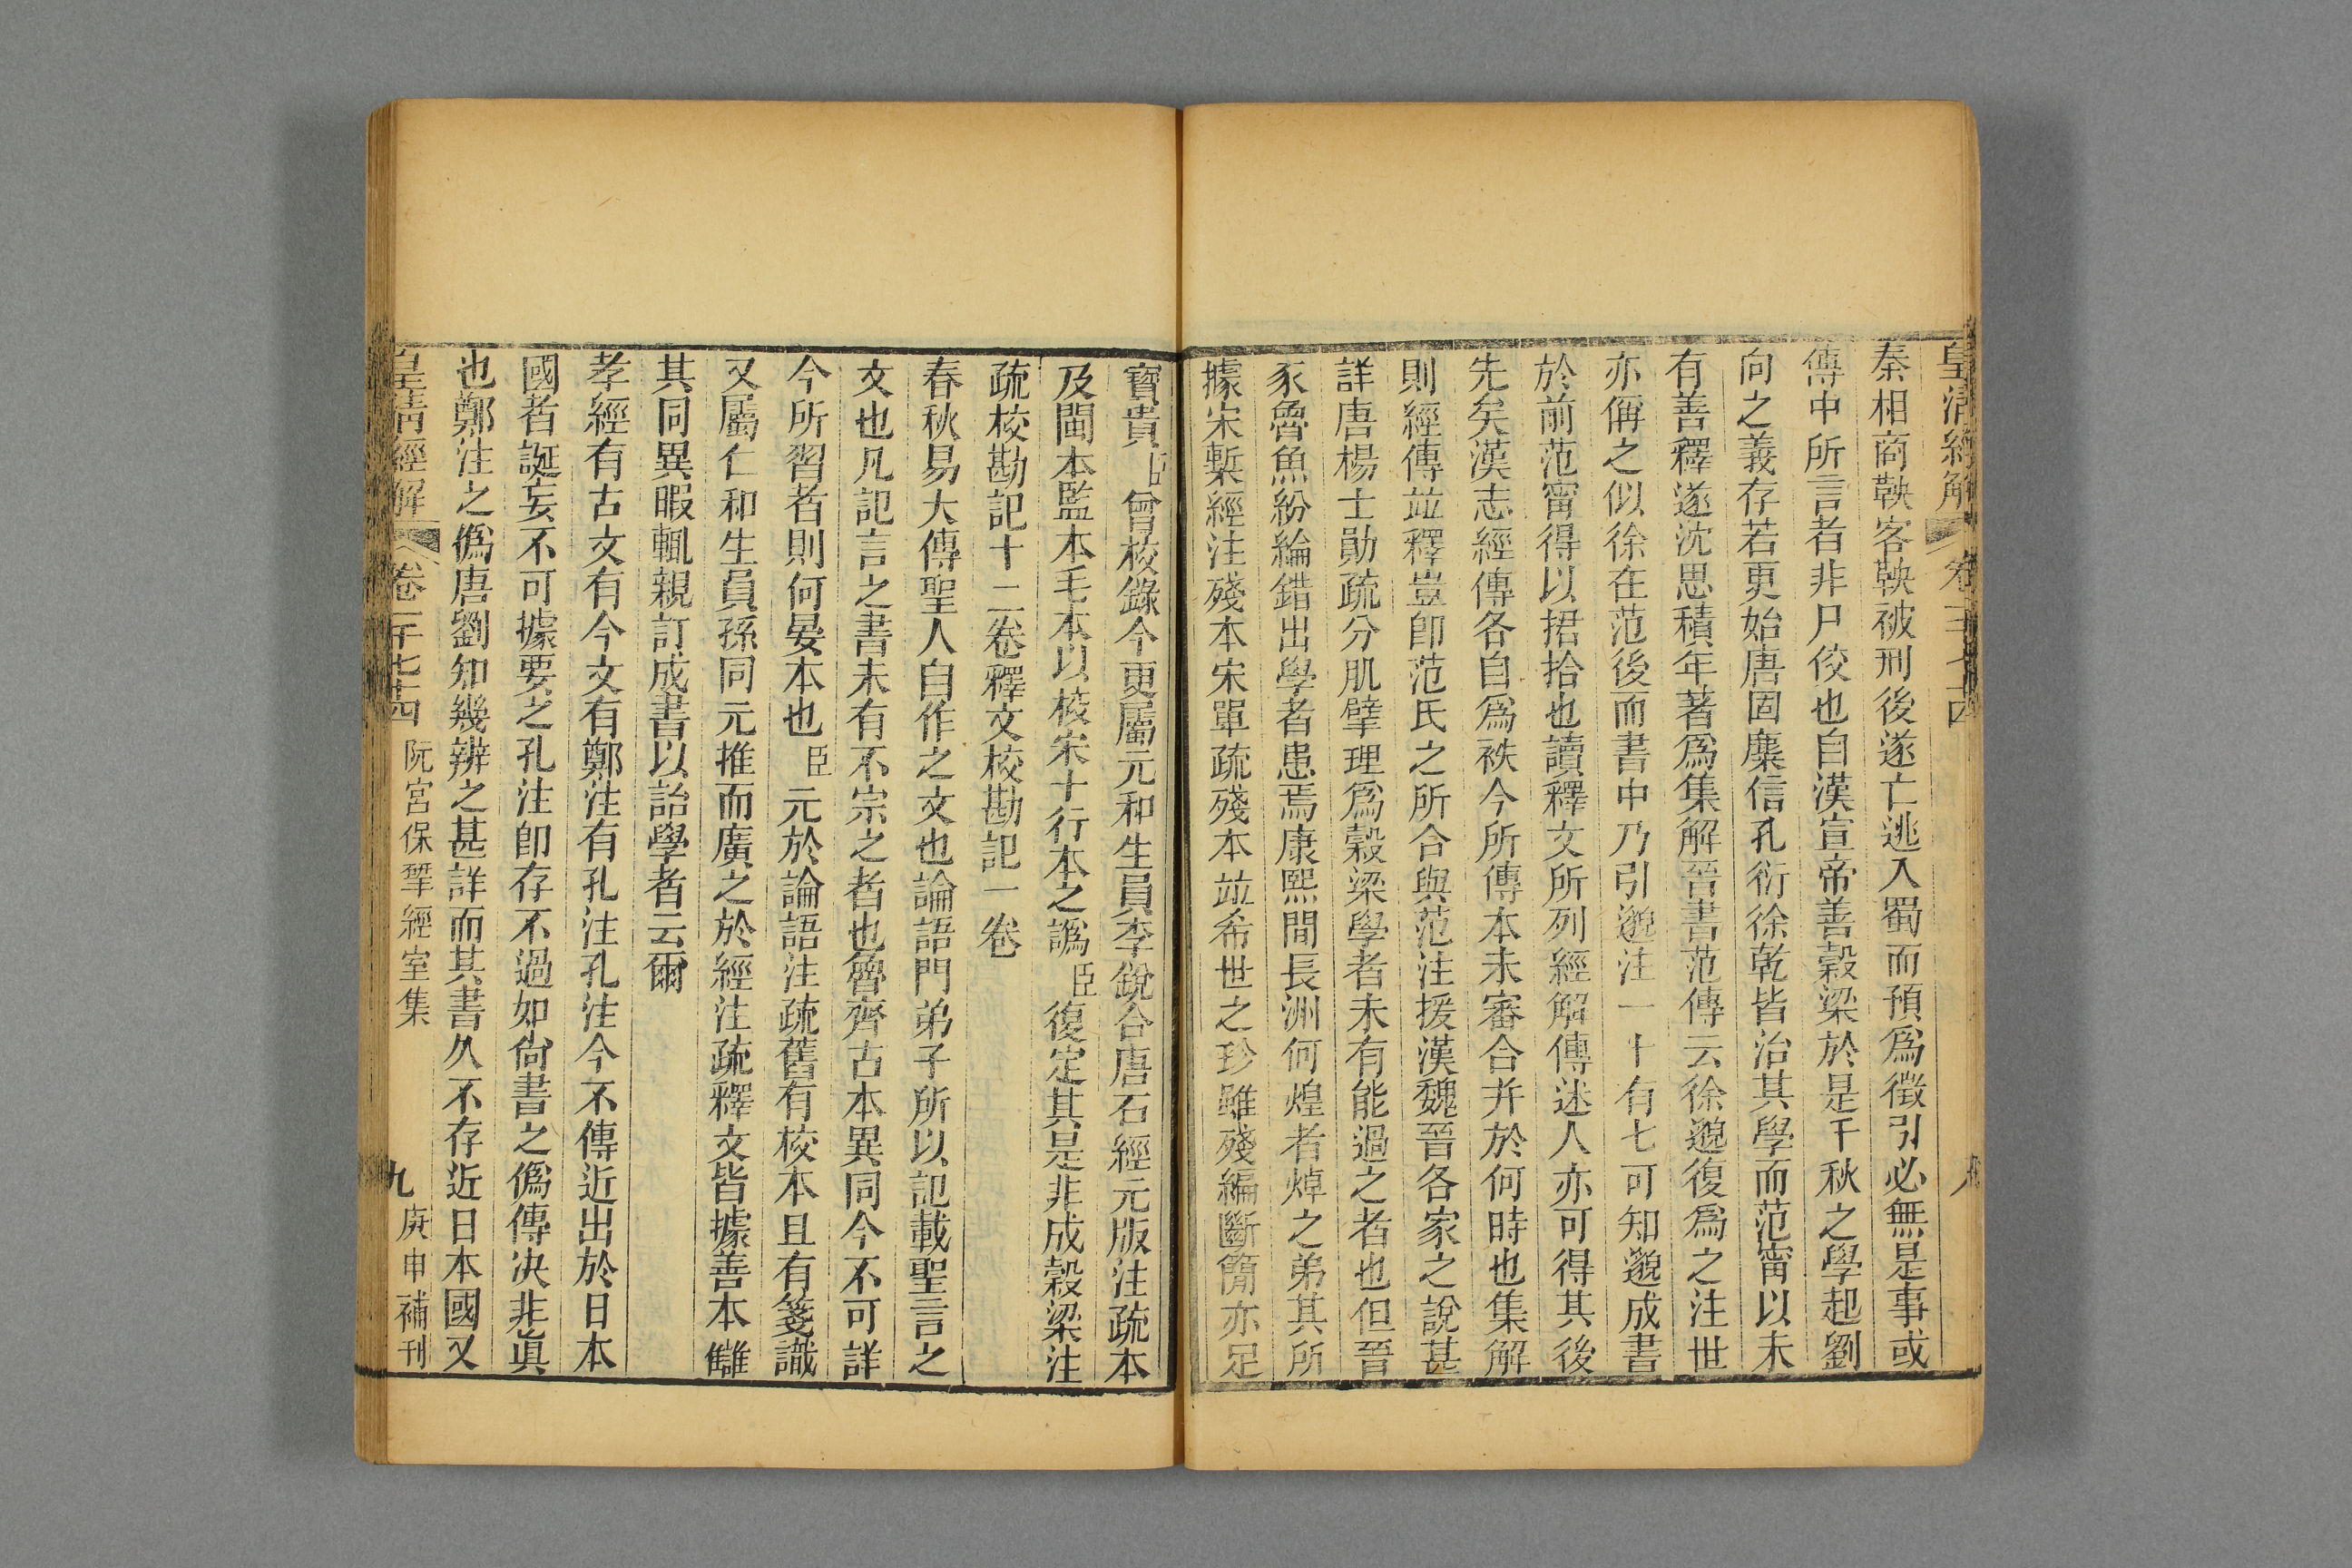 皇清經解 卷一千七十四 八
秦相商鞅客鞅被刑後遂亡逃入蜀而預爲徵引必無是事或
傳中所言者非尸佼也自漢宣帝善穀梁於是千秋之學起劉
向之義存若更始唐固麋信孔衍徐乾皆治其學而范甯以未
有善釋遂沈思積年著爲集解晉書范傳云徐邈復爲之注世
亦偁之似徐在范後而書中乃引邈注一十有七可知邈成書
於前范甯得以捃拾也讀釋文所列經解傳述人亦可得其後
先矣漢志經傳各自爲袟今所傳本未審合并於何時也集解
則經傳並釋豈卽范氏之所合與范注援漢魏晉各家之說甚
詳唐楊士勛疏分肌擘理爲穀梁學者未有能過之者也但晉
豕魯魚紛綸錯出學者患焉康熙間長洲何煌者焯之弟其所
據宋槧經注殘本宋單疏殘本並希世之珍雖殘編斷簡亦足
寶貴臣曾校錄今更屬元和生員李銳合唐石經元版注疏本
及閩本監本毛本以校宋十行本之譌臣復定其是非成穀梁注
疏校勘記十二卷釋文校勘記一卷
春秋易大傳聖人自作之文也論語門弟子所以記載聖言之
文也凡記言之書未有不宗之者也魯齊古本異同今不可詳
今所習者則何晏本也臣元於論語注疏舊有校本且有箋識
又屬仁和生員孫同元推而廣之於經注疏釋文皆據善本讎
其同異暇輒親訂成書以詒學者云爾
孝經有古文有今文有鄭注有孔注孔注今不傳近出於日本
國者誕妄不可據要之孔注卽存不過如尙書之僞傳決非眞
也鄭注之僞唐劉知幾辨之甚詳而其書久不存近日本國又
皇清經解 卷一千七十四 阮宮保揅經室集 九 庚申補刊